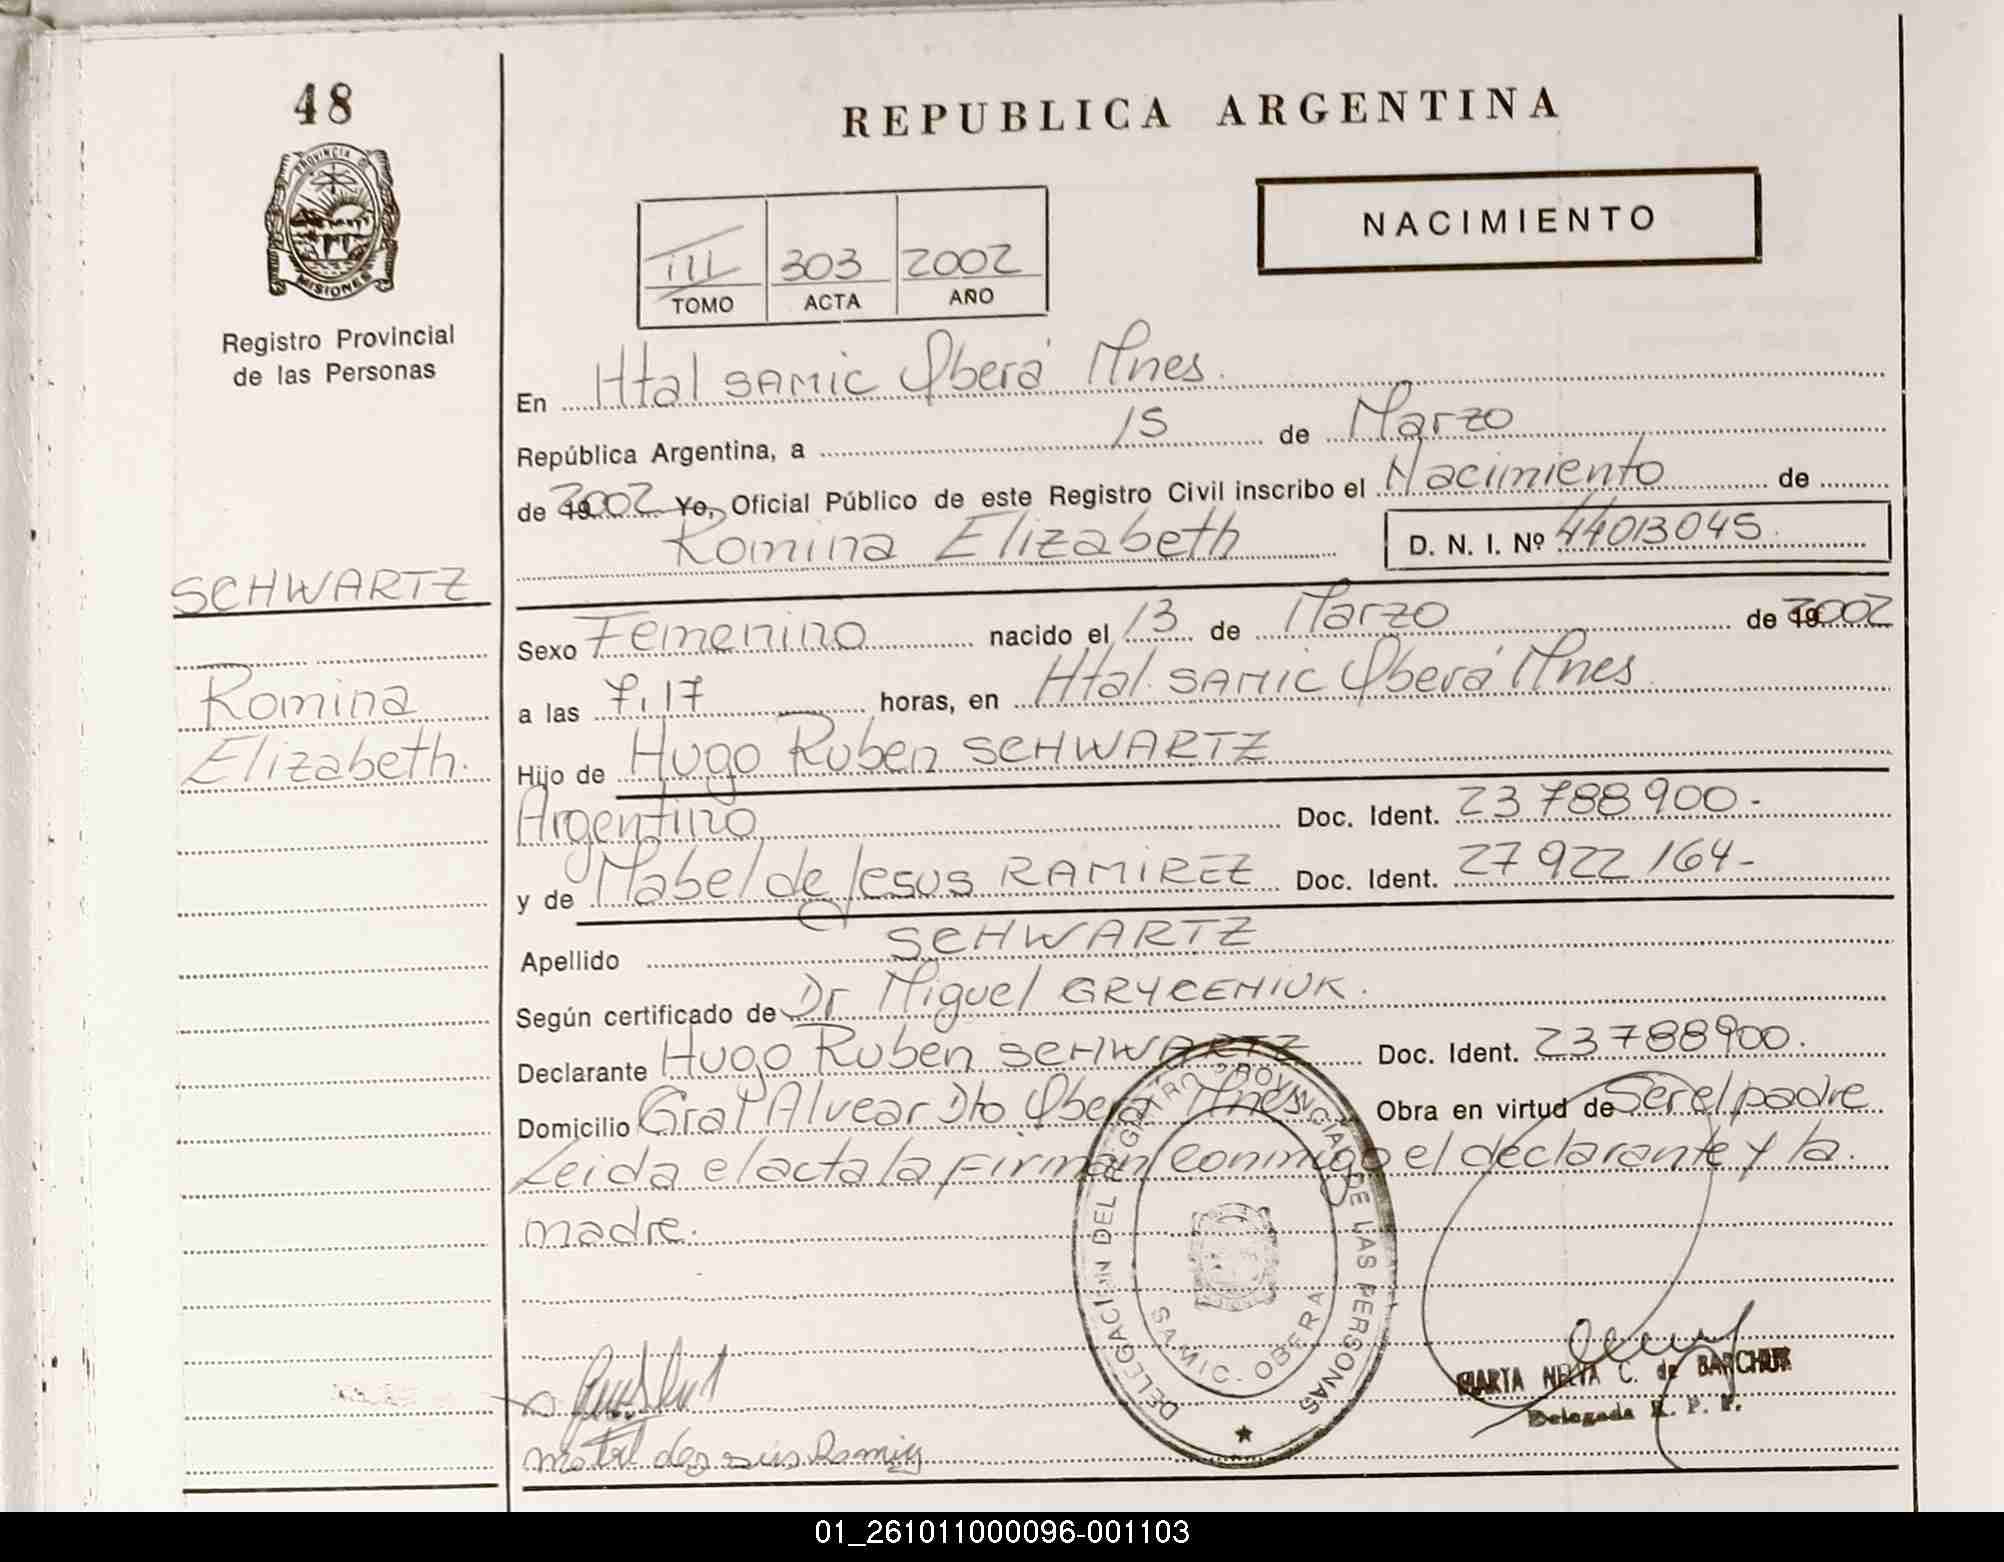 48
PROVINCIA DE
MISIONES
Registro Provincial
de las Personas
SCHWARTZ
Romina
Elizabeth.
REPUBLICA ARGENTINA
NACIMIENTO
III 303 2002
TOMO ACTA AÑO
En Htal SAMIC Oberá Mnes.
República Argentina, a 15 de Marzo
de 2002 Yo, Oficial Público de este Registro Civil inscribo el Nacimiento de
Romina Elizabeth D. N. I. Nº 44013045.
Sexo Femenino nacido el 13 de Marzo de 2002
a las 7,17 horas, en Htal. SAMIC Oberá Mnes.
Hijo de Hugo Ruben SCHWARTZ
Argentino Doc. Ident. 23 788 900.-
y de Mabel de Jesus RAMIREZ Doc. Ident. 27 922 164-
Apellido SCHWARTZ
Según certificado de Dr Miguel GRYCENIUK.
Declarante Hugo Ruben SCHWARTZ Doc. Ident. 23 788900.
Domicilio Gral Alvear Dto Oberá Mnes. Obra en virtud de Ser el padre
Leida el acta la firman conmigo el declarante y la.
madre.
DELEGACION DEL REGISTRO PROVINCIAL DE LAS PERSONAS
SAMIC. OBERA
MARTA NELVA C. de BARCHUK
Delegada R. P. P.
01_261011000096-001103